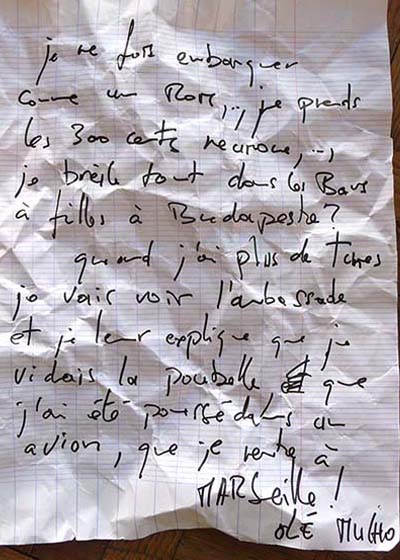 je me fais embarquer
comme un Rom,.., je prends
les 300 cents neuros, ..,
je brûle tout dans les Bars
à filles à Budapeste?
quand j'ai plus de tunes
je vais voir l'ambassade
et je leur explique que je
vidais la poubelle et que
j'ai été poussé dans un
avion, que je rentre à
MARSeille!
OLÉ